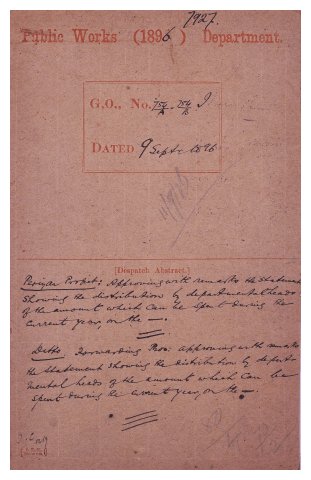 1927.
Public Works (1896) Department.
G.O., No. 754/A - 754/B I
DATED 9 Septr 1896
[Despatch Abstract.]
Periyar Project: Approving with remarks the Statement
showing the distribution by departmental heads
of the amount which can be spent during the
current year, on the —.
Ditto Forwarding Proc: approving with remarks
the Statement showing the distribution by depart-
mental heads of the amount which can be
spent during the current year, on the —.